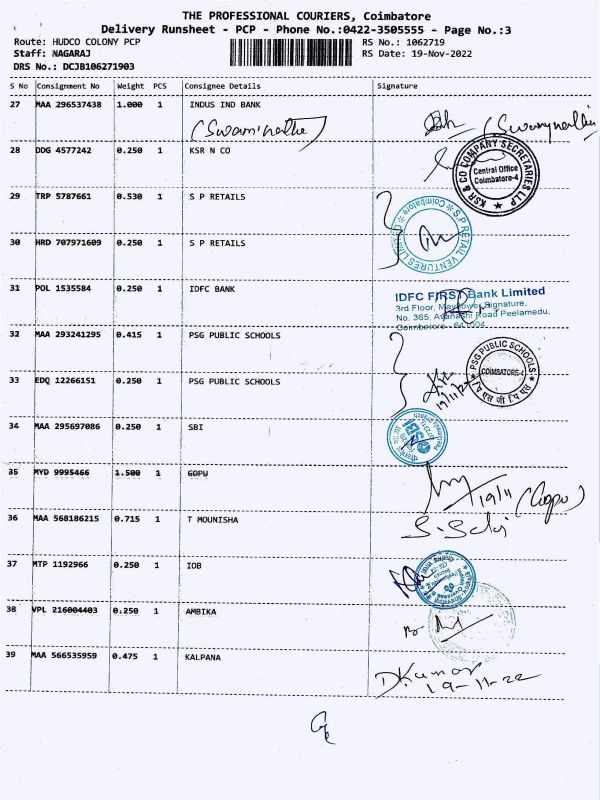 THE PROFESSIONAL COURIERS, Coimbatore
Delivery Runsheet - PCP - Phone No.:0422-3505555 - Page No.:3
Route: HUDCO COLONY PCP RS No.: 1062719
Staff: NAGARAJ RS Date: 19-Nov-2022
DRS No.: DCJB106271903
S No Consignment No Weight PCS Consignee Details Signature
27 MAA 296537438 1.000 1 INDUS IND BANK
(Swaminathan) (Swaminathan
28 DDG 4577242 0.250 1 KSR N CO
KSR & CO COMPANY SECRETARIES LLP
Central Office
Coimbatore-4
29 TRP 5787661 0.530 1 S P RETAILS
S.P RETAIL VENTURES LIMITED Coimbatore
30 HRD 707971609 0.250 1 S P RETAILS
31 POL 1535584 0.250 1 IDFC BANK
IDFC FIRST Bank Limited
3rd Floor, Mayflower Signature,
No. 365, Avanashi Road Peelamedu,
Coimbatore - 641004
32 MAA 293241295 0.415 1 PSG PUBLIC SCHOOLS
PSG PUBLIC SCHOOLS
COIMBATORE-4
33 EDQ 12266151 0.250 1 PSG PUBLIC SCHOOLS
19/11/22
34 MAA 295697086 0.250 1 SBI
SBI
35 MYD 9995466 1.500 1 GOPU
19/11 (Gopu)
36 MAA 568186215 0.715 1 T MOUNISHA
37 MTP 1192966 0.250 1 IOB
38 VPL 216004403 0.250 1 AMBIKA
39 MAA 566535959 0.475 1 KALPANA
D.Kumar
19-11-22